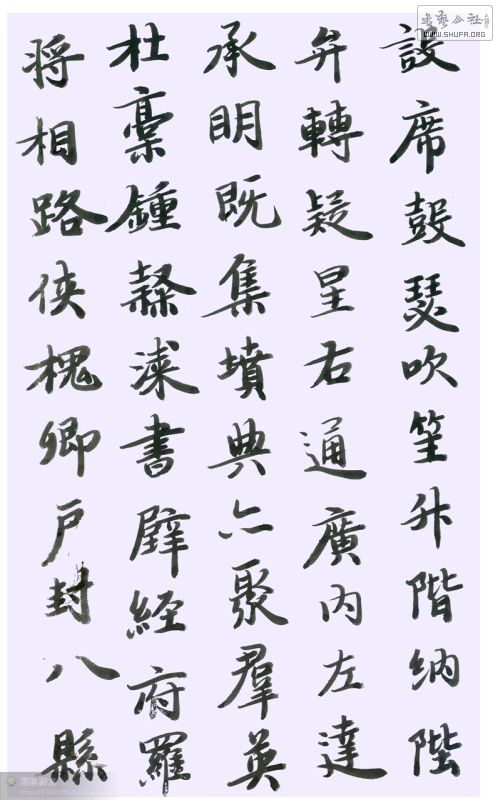 設席鼓瑟吹笙升階納陛
弁轉疑星右通廣内左達
承明既集墳典亦聚羣英
杜稾鍾隸漆書壁經府羅
将相路俠槐卿戶封八縣
WWW.SHUFA.ORG